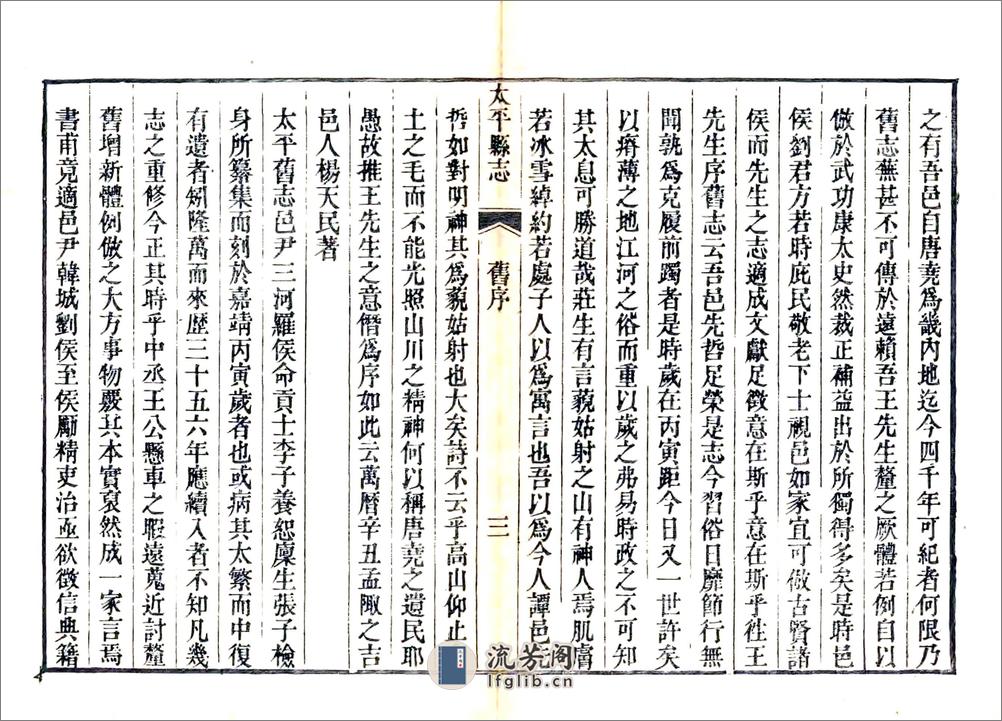 之有吾邑自唐堯爲畿內地迄今四千年可紀者何限乃
舊志蕪甚不可傳於遠賴吾王先生釐之厥體若例自以
倣於武功康太史然裁正補益出於所獨得多矣是時邑
侯劉君方若時庇民敬老下士視邑如家宜可倣古賢諸
侯而先生之志適成文獻足徵意在斯乎意在斯乎徃王
先生序舊志云吾邑先哲足榮是志今習俗日靡節行無
聞孰爲克履前躅者是時歲在丙寅距今日又一世許矣
以瘠薄之地江河之俗而重以歲之弗易時政之不可知
其太息可勝道哉莊生有言藐姑射之山有神人焉肌膚
若冰雪綽約若處子人以爲寓言也吾以爲今人譚邑先
太平縣志
舊序
三
哲如對明神其爲藐姑射也大矣詩不云乎高山仰止
土之毛而不能光照山川之精神何以稱唐堯之遺民耶
愚故推王先生之意僭爲序如此云萬曆辛丑孟陬之吉
邑人楊天民著
太平舊志邑尹三河羅侯命貢士李子養恕廩生張子檢
身所纂集而刻於嘉靖丙寅歲者也或病其太繁而中復
有遺者矧隆萬而來歴三十五六年應續入者不知凡幾
志之重修今正其時乎中丞王公懸車之暇遠蒐近討釐
舊增新體例倣之大方事物覈其本實裒然成一家言焉
書甫竟適邑尹韓城劉侯至侯勵精吏治亟欲徵信典籍
流芳阁
lfglib.cn